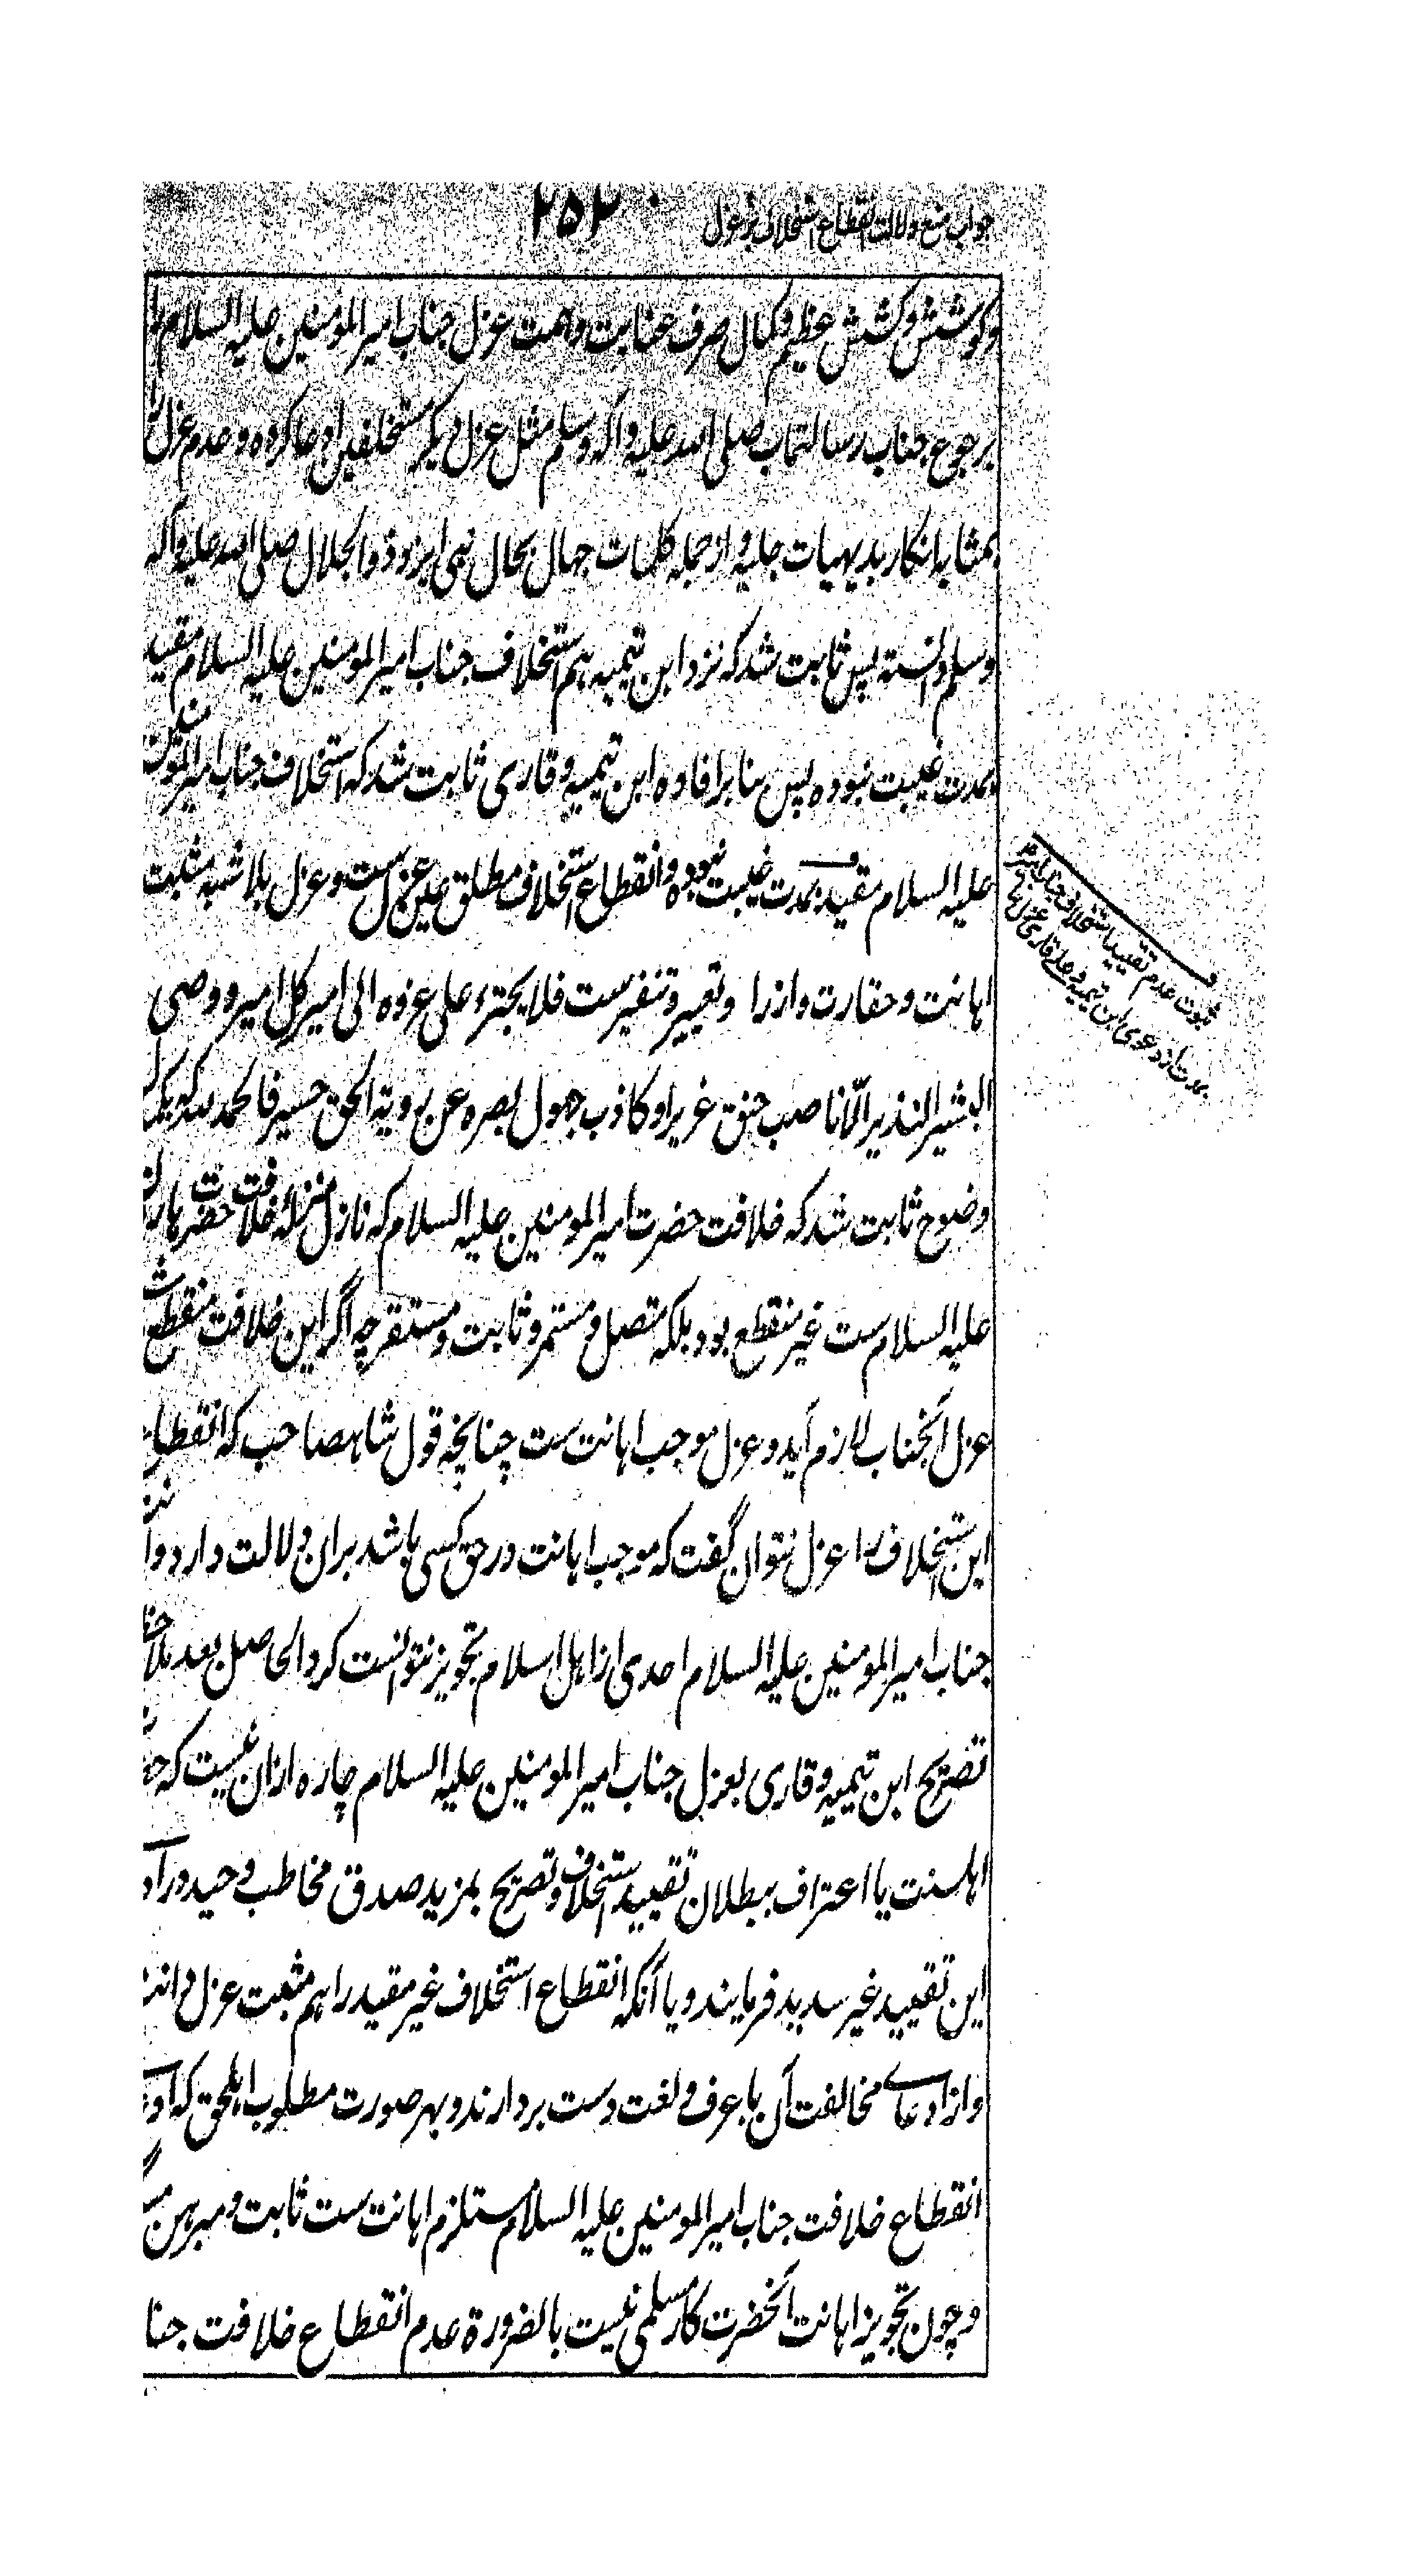 جواب منع دلالت انقطاع استخلاف بر عزل
۲۵۲
وکوشش وکشش عظیم وکمال صرف عنایت وهمت عزل جناب امیرالمومنین علیه السلام
برجوع جناب رسالتماب صلی الله علیه وآله وسلم مثل عزل دیگر مستخلفین ادعا کرده وعدم عزل
بمثابه انکار بدیهیات جلیه واز جمله کلمات جهال بحال نبی ایزد ذوالجلال صلی الله علیه وآله
وسلم دانسته پس ثابت شد که نزد ابن تیمیه هم استخلاف جناب امیرالمومنین علیه السلام مقید
بمدت غیبت نبوده پس بنابر افاده ابن تیمیه وقاری ثابت شد که استخلاف جناب امیرالمومنین
علیه السلام مقید بمدت غیبت نبوده وانقطاع استخلاف مطلق عین عزل است وعزل بلا شبهه مثبت
اهانت وحقارت وازرا وتعییر وتنفیرست فلا یجترء علی عزوه الی امیر کل امیر ووصی
البشیر النذیر الّا ناصب حنق غریر او کاذب جهول بصره عن رویة الحق حسیر فالحمد لله که بکمال
وضوح ثابت شد که خلافت حضرت امیرالمومنین علیه السلام که نازل منزله خلافت حضرت هارون
علیه السلام ست غیر منقطع بود بلکه متصل ومستمر وثابت ومستقر چه اگر این خلافت منقطع
عزل آنجناب لازم آید وعزل موجب اهانت ست چنانچه قول شاهصاحب که انقطاع
این استخلاف را عزل نتوان گفت که موجب اهانت در حق کسی باشد بران دلالت دارد
جناب امیرالمومنین علیه السلام احدی از اهل اسلام تجویز نتوانست کرد الحاصل بعد ملاحظه
تصریح ابن تیمیه وقاری بعزل جناب امیرالمومنین علیه السلام چاره ازان نیست که
اهلسنت یا اعتراف ببطلان تقیید استخلاف وتصریح بمزید صدق مخاطب وحید در
این تقیید غیر سدید فرمایند ویا آنکه انقطاع استخلاف غیر مقید را هم مثبت عزل
واز ادعای مخالفت آن با عرف ولغت دست بردارند وبهر صورت مطلوب اهلحق که
انقطاع خلافت جناب امیرالمومنین علیه السلام مستلزم اهانت ست ثابت ومبرهن
وچون تجویز اهانت آنحضرت کار مسلمی نیست بالضرورة عدم انقطاع خلافت جنا
ثبوت عدم تقیید استخلاف جناب امیر
بمدت از دعوی ابن تیمیه وملا قاری عزل